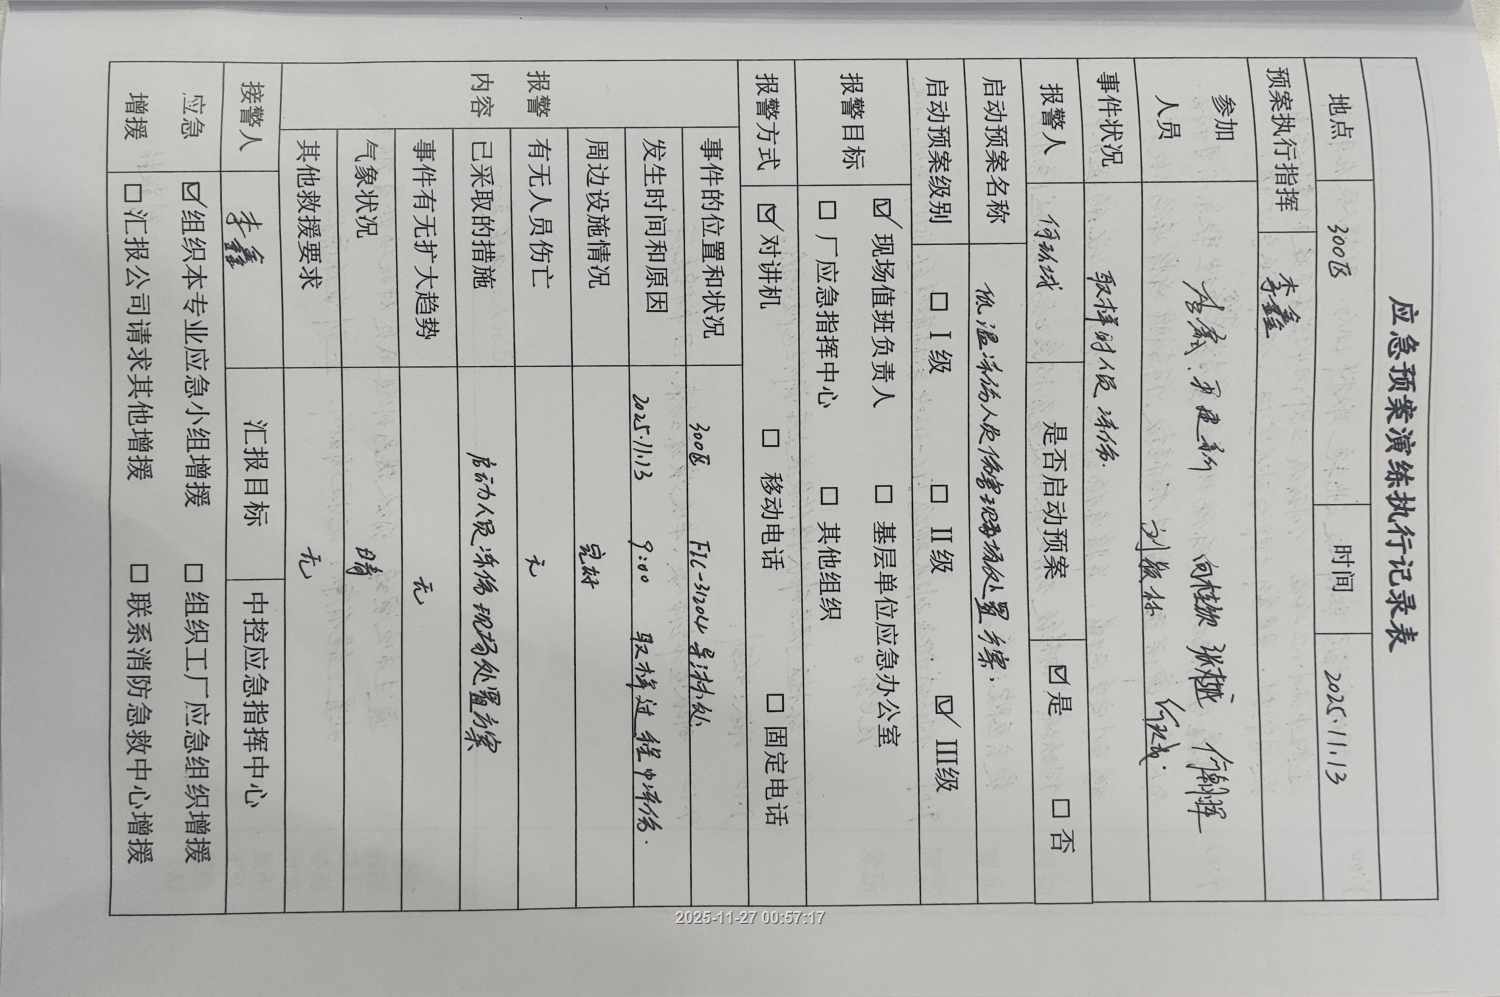 应急预案演练执行记录表
地点 300区 时间 2025.11.13
预案执行指挥 李鑫
参加人员 李鑫、
事件状况 取样时人员冻伤.
报警人 是否启动预案 ☑是 □否
启动预案名称 低温冻伤人员伤害现场处置方案.
启动预案级别 □ I级 □ II级 ☑ III级
报警目标 ☑现场值班负责人 □ 基层单位应急办公室
□ 厂应急指挥中心 □ 其他组织
报警方式 ☑对讲机 □ 移动电话 □ 固定电话
报警内容
事件的位置和状况 300区 FIC-31204 导淋处
发生时间和原因 2025.11.13 9:00 取样过程中冻伤.
周边设施情况 完好
有无人员伤亡 无
已采取的措施 启动人员冻伤现场处置方案
事件有无扩大趋势 无
气象状况 晴
其他救援要求 无
接警人 李鑫 汇报目标 中控应急指挥中心
应急增援 ☑组织本专业应急小组增援 □ 组织工厂应急组织增援
□汇报公司请求其他增援 □ 联系消防急救中心增援
2025-11-27 00:57:17